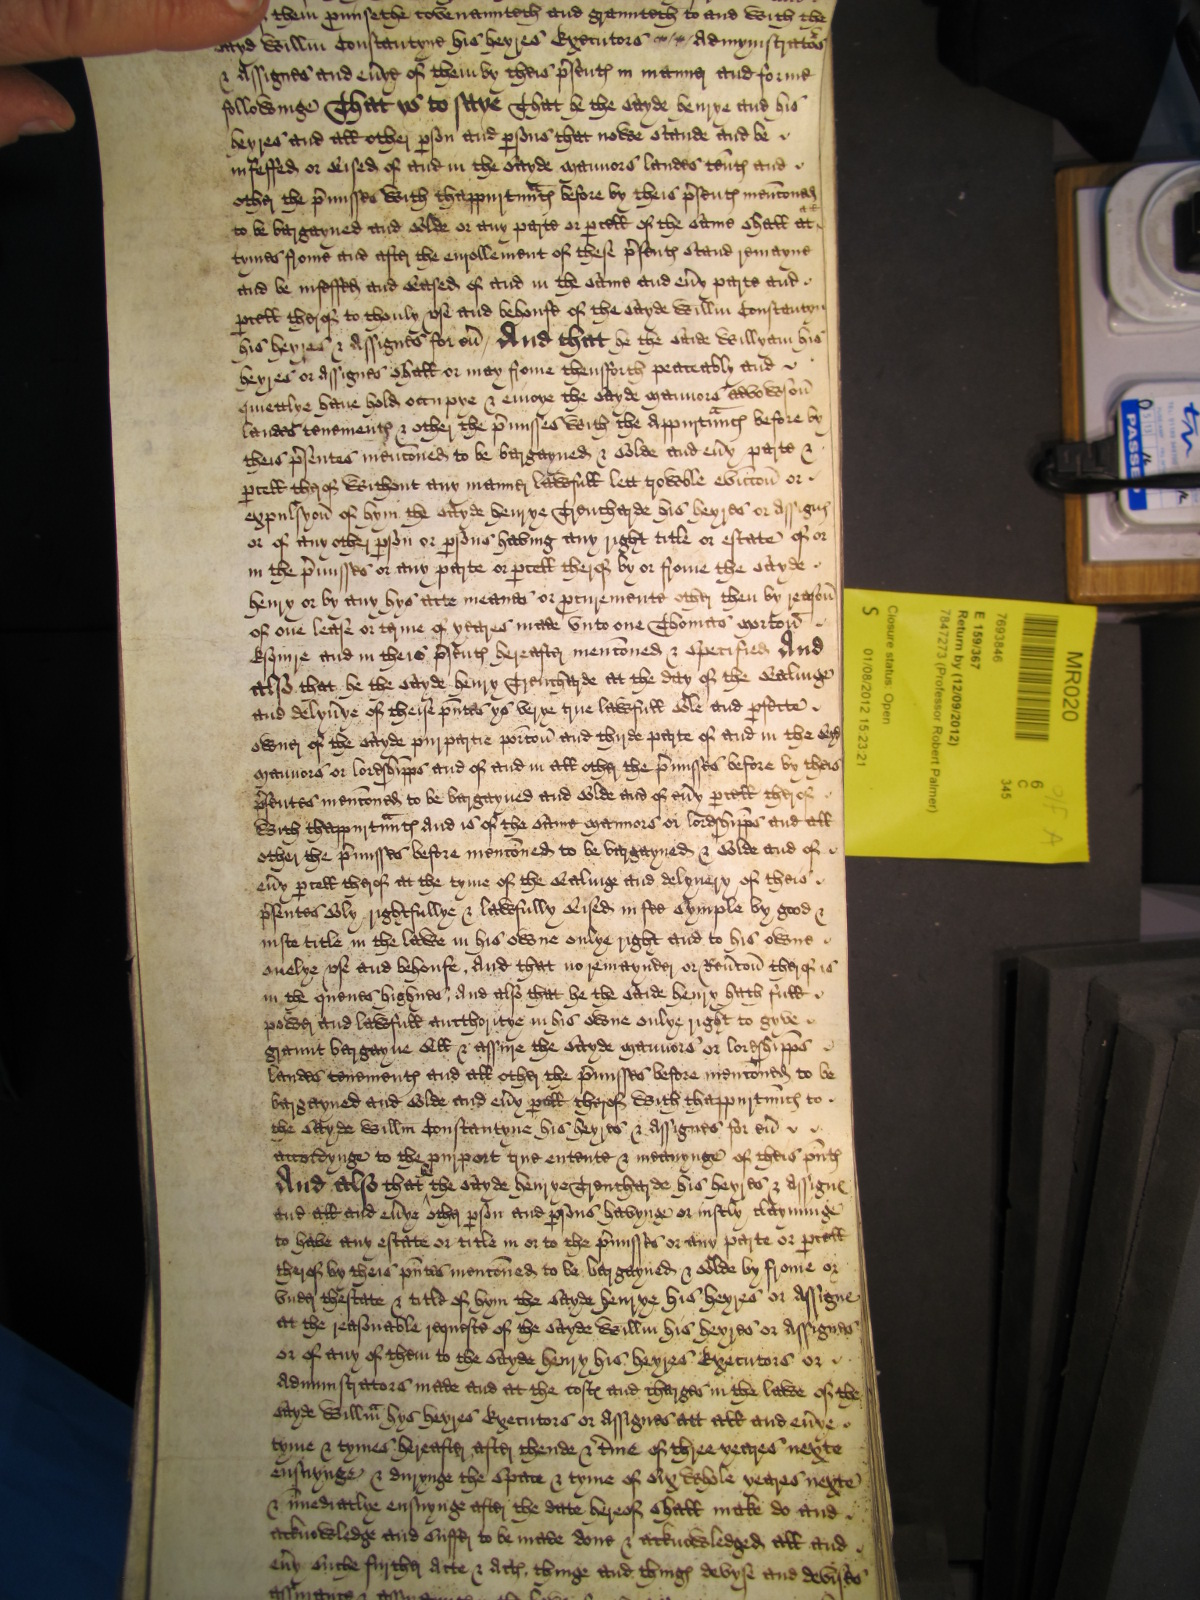 them p̃misethe covenannteth and grannteth to and with the
sayd Willm̃ Constantyne his heyres Executors Admynistrators
& Assignes and eũye of them by theis p̃sents in manner and forme
followinge That ys to saye That he the sayde henrye and his
heyres and all other pson and psons that nowe stande and be
infeffed or seised of and in the sayde mannors landes teñts and
other the p̃misses with thappurtñnces before by theis p̃sents mencõned
to be bargayned and solde or any parte or pcell of the same shall at all
tymes frome and after the enrollement of these p̃sents stand remayne
and be infeffed and seased of and in the same and eũy parte and
pcell therof to thonly use and behoufe of the sayde Willm̃ Constantyne
his heyres & Assignes for eũ And that he the saide Willyam his
heyres or assignes shall or may frome thensforth peacably and
quietlye have hold occupye & enioye the sayde mannors advowson
landes tenements & other the p̃misses with the Appurtñnces before by
theis p̃sentes mencõned to be bargayned & solde and eũy parte &
pcell therof without any manner lawfull lett trowble eviccõn or
expulsyon of hym the sayde henrye Trencharde his heyres or assignes
or of any other pson or psons having any right title or estate of or
in the p̃misses or any parte or pcell therof by or frome the sayde
henry or by any hys acte meanes or pcurement other then by reason
of one lease or terme of yeares made unto one Thomas morton
Esquire and in theis p̃sents hereafter mencõned & specified And
also that he the sayde henry Trencharde at the day of the sealinge
and delyũye of theise p̃ntes ys verye true lawfull sole and pfecte
owner of the sayde purpartie porcõn and thirde parte of and in the sayd
mannors or lordshipps and of and in all other the p̃misses before by theis
p̃sentes mencõned to be bargayned and solde and of eũy pcell therof
with thappurtñnces And is of the same mannors or lordshipps and all
other the p̃misses before mencõned to be bargayned & solde and of
eũy pcell therof at the tyme of the sealinge and delyuery of theis
p̃sentes soly rightfullye & lawfully seised in fee symple by good &
iuste title in the lawe in his owne onlye right and to his owne
onelye use and behoufe. And that no remaynder or reũcõn therof is
in the quenes highnes. And also that he the saide henry hath full
power and lawfull aucthoritye in his owne onlye right to gyve
graunt bargayne sell & assure the sayde mannors or lordshipps
landes tenements and all other the p̃misses before mencõned to be
bargayned and solde and eũy pcell therof with thappurtñnces to
the sayde Willm̃ Constantyne his heyres & Assignes for eũ
accordynge to the purport true entente & meanynge of theis p̃nts
And also that he the sayde henrye Trencharde his heyres & Assignes
and all and eũye other pson and psons havynge or iustly clayminge
to have any estate or title in or to the p̃misses or any parte or pcell
therof by theis p̃ntes mencõned to be bargayned & solde by frome or
under thestate & title of hym the sayde henrye his heyres or Assignes
at the reasonable requeste of the sayde Willm̃ his heyres or Assignes
or of any of them to the sayde henry his heyres Executors or
Administrators made and at the costs and charges in the lawe of the
sayde Willm̃ hys heyres Executors or Assignes att all and eũye
tyme & tymes hereafter after thende & t̃me of three yeares nexte
ensuynge & durynge the space & tyme of six whole yeares nexte
& im̃ediatlye ensuynge after the date hereof shall make do and
acknowledge and suffer to be made done & acknowledged all and
eũy suche further Acte & Acts, thinge and things devyse and devises
MR020
7693846
6
C
345
E 159/367
Return by (12/09/2012)
7847273 (Professor Robert Palmer)
Closure status: Open
S
01/08/2012 15:23:21
O/F A
PASSE